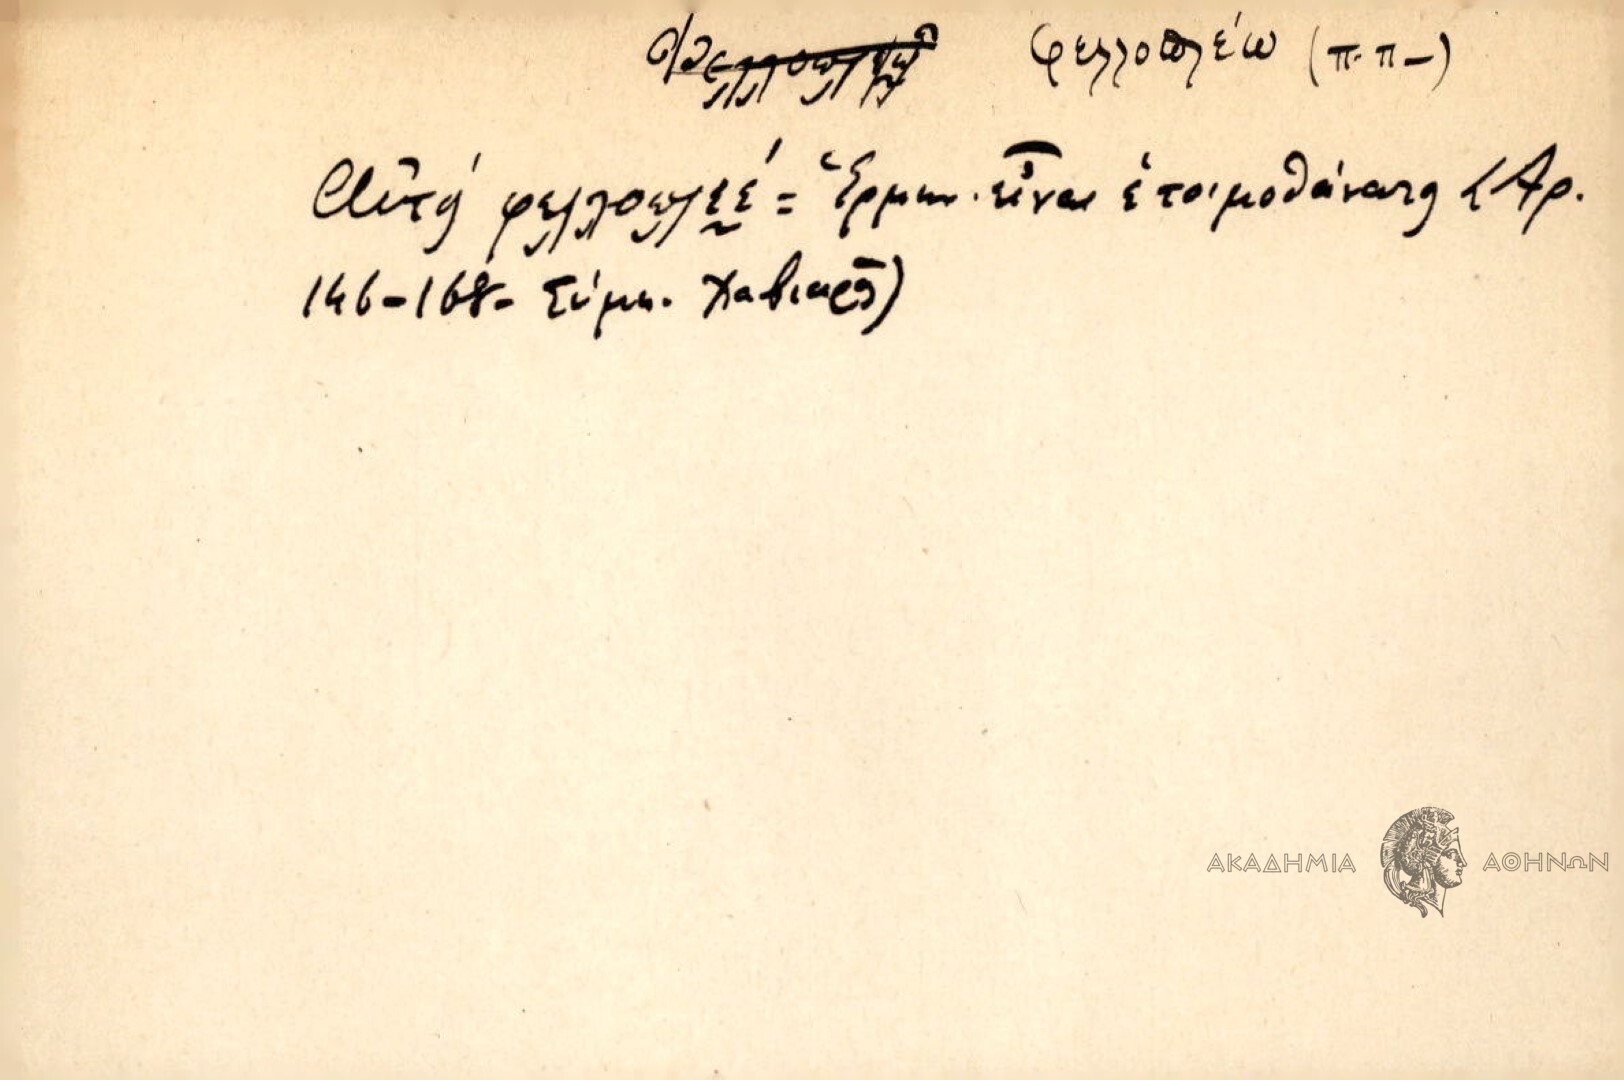 φελλοπλέω (π.π-)
Αὐτὴ φελλοπλέει = Ἑρμην. εἶναι ἑτοιμοθάνατη (Ἀρ.
146-168- Σύμη. Χαβιαρᾶ)
ΑΚΑΔΗΜΙΑ ΑΘΗΝΩΝ